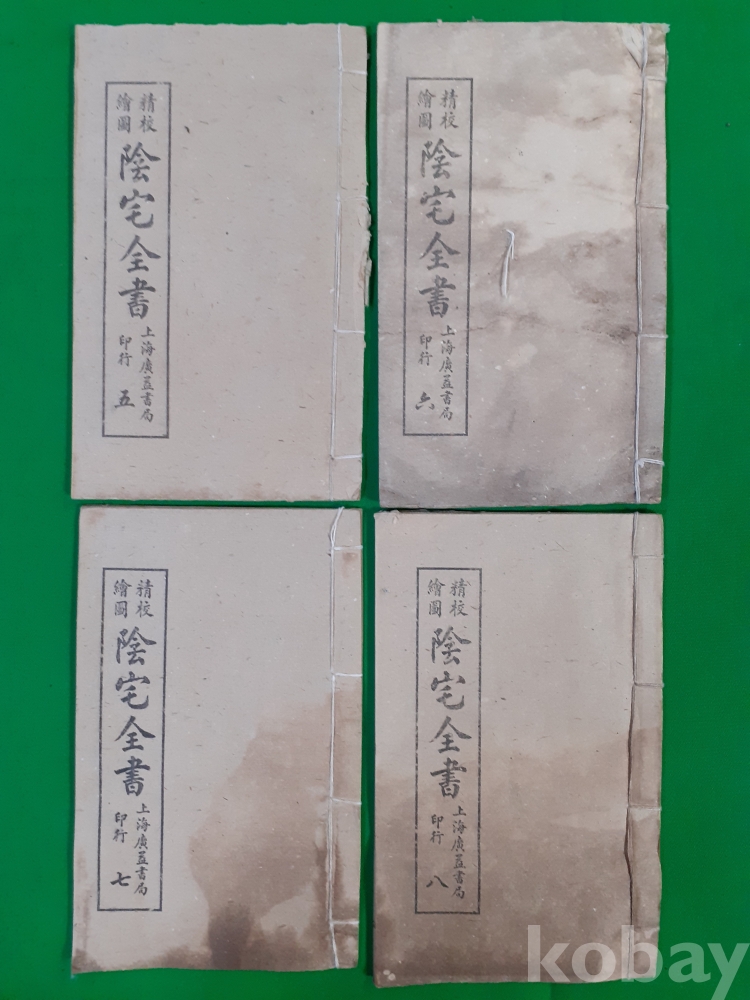 精校
繪圖
陰宅全書
上海廣益書局
印行
五
精校
繪圖
陰宅全書
上海廣益書局
印行
六
精校
繪圖
陰宅全書
上海廣益書局
印行
七
精校
繪圖
陰宅全書
上海廣益書局
印行
八
kobay